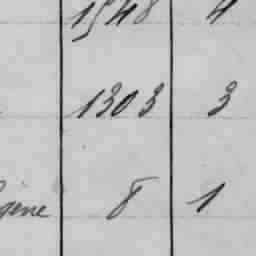 1548 4
1303 3
gène 8 1